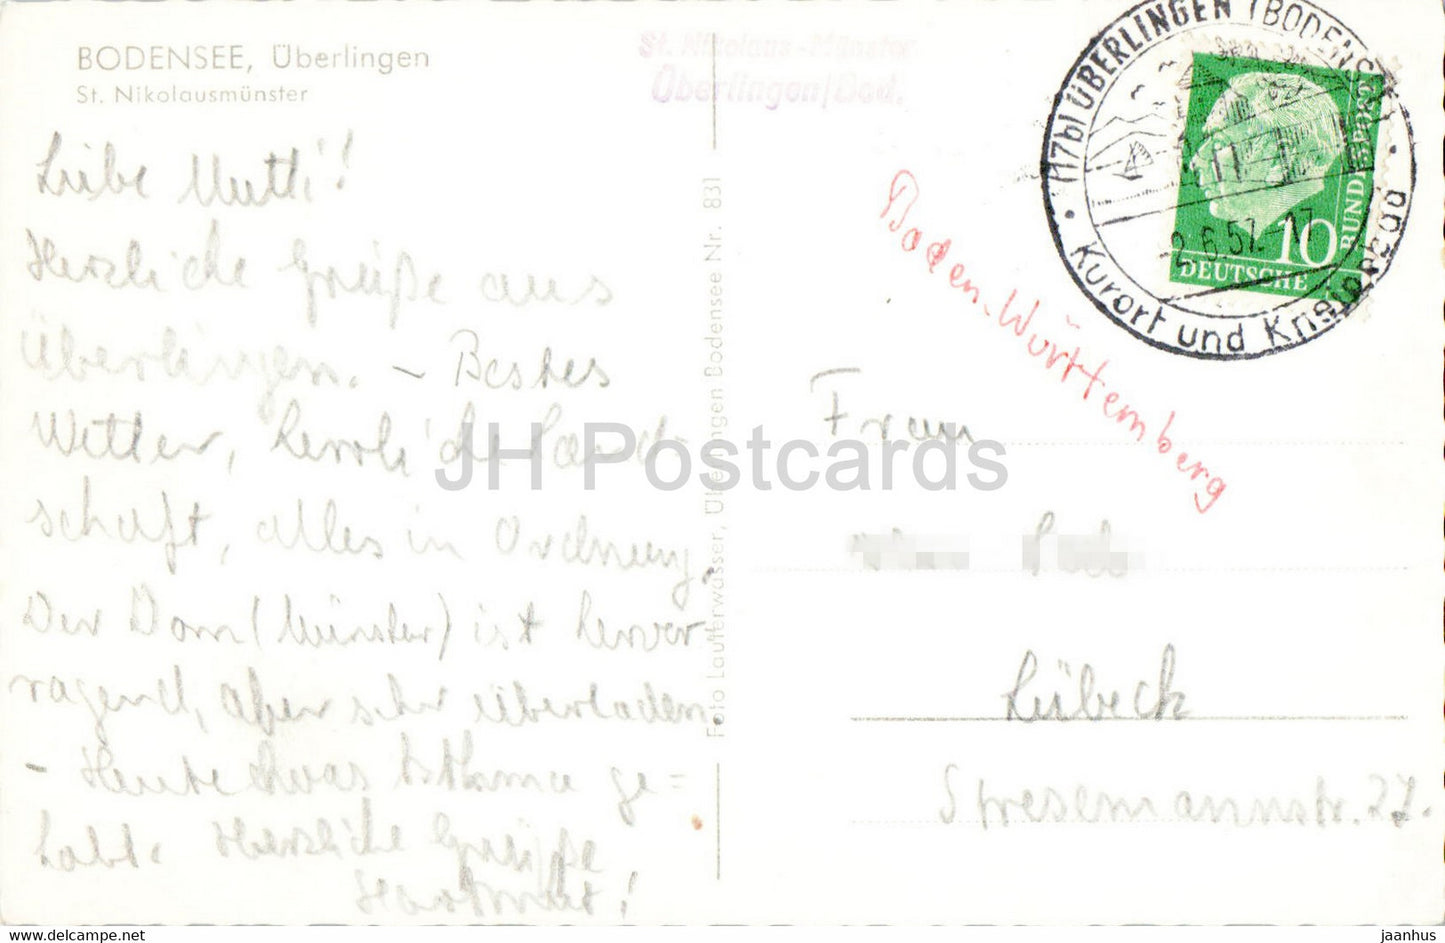 BODENSEE, Überlingen
St. Nikolausmünster
Liebe Mutti!
Herzliche Grüße aus
Überlingen. – Bestes
Wetter, herrliche Land-
schaft, alles in Ordnung.
Der Dom (Münster) ist hervor
ragend, aber sehr überladen
– Heute etwas Asthma ge=
habt. Herzliche Grüße
Hartmut!
Foto Lauterwasser, Überlingen Bodensee Nr. 831
St. Nikolaus-Münster
Überlingen/Bod.
(17b) ÜBERLINGEN (BODENSEE)
-2.6.57.-17
Kurort und Kneippbad
10
DEUTSCHE
BUNDESPOST
Baden-Württemberg
Frau
Lübeck
Stresemannstr. 27.
JH Postcards
hippostcard.com
jaanhus